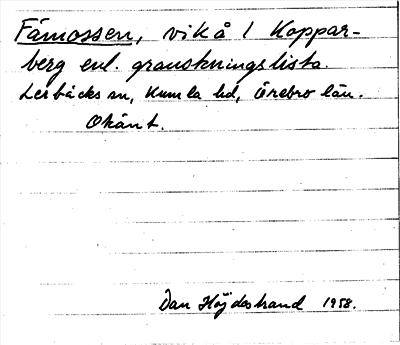 Fämossen, vik å 1 Koppar-
berg enl. granskningslista.
Lerbäcks sn, Kumla hd, Örebro län.
Okänt.
Dan Höjdestrand 1958.